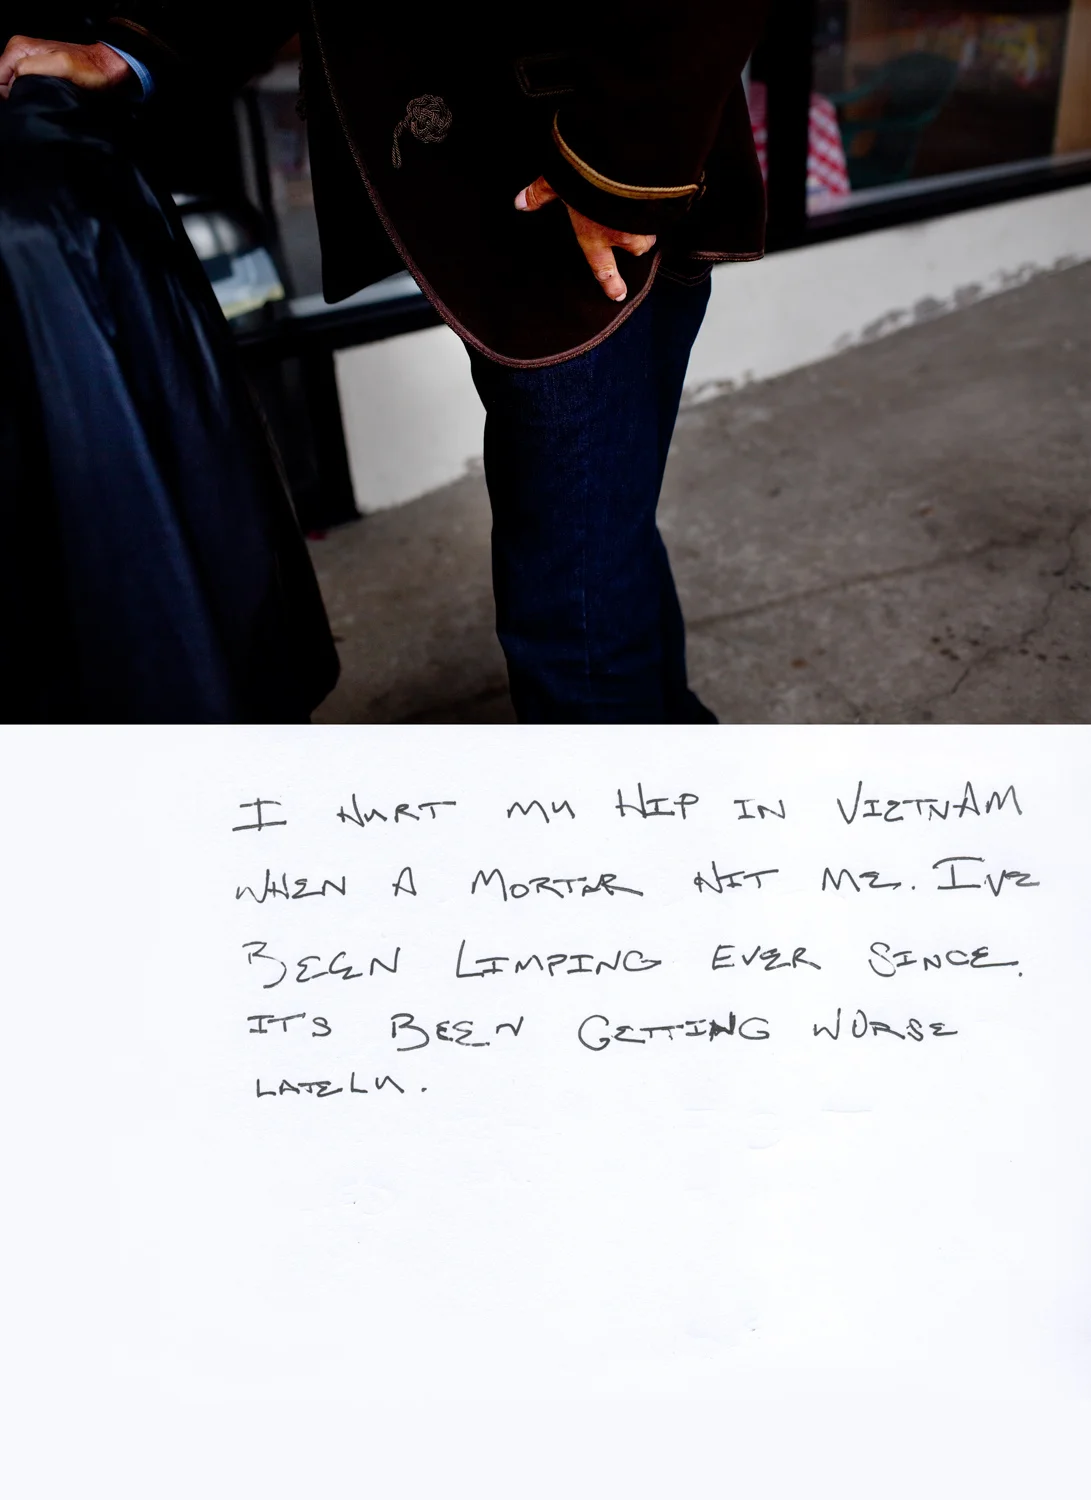 I HURT MY HIP IN VIETNAM
WHEN A MORTAR HIT ME. I'VE
BEEN LIMPING EVER SINCE.
IT'S BEEN GETTING WORSE
LATELY.